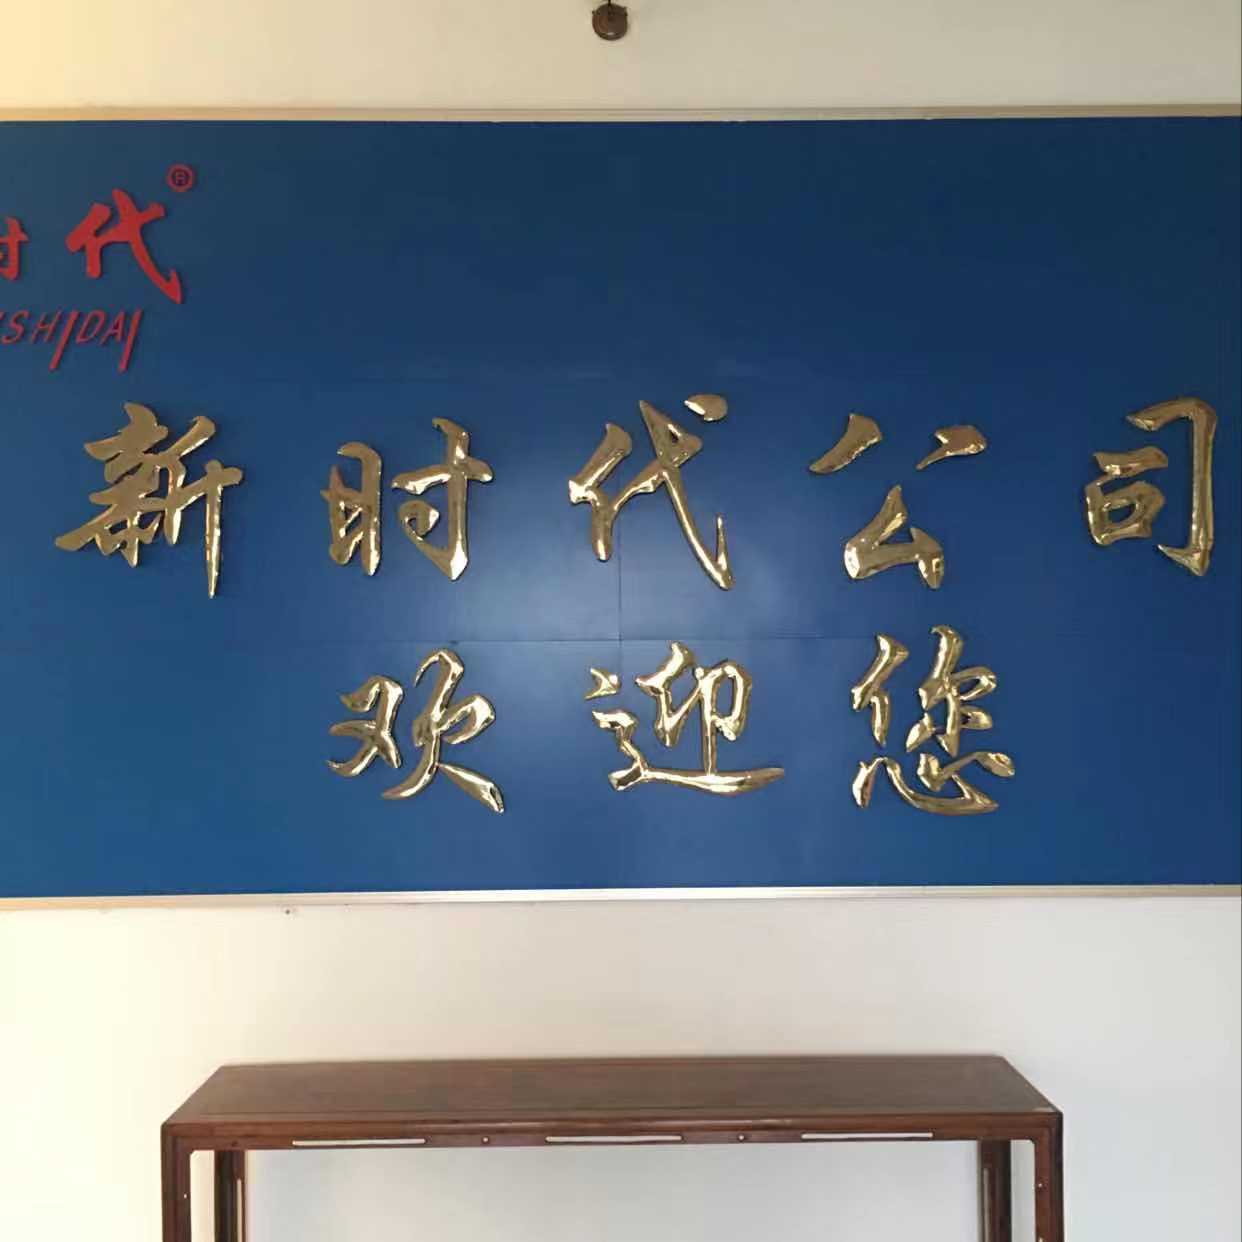 时代®
SHIDAI
新时代公司
欢迎您